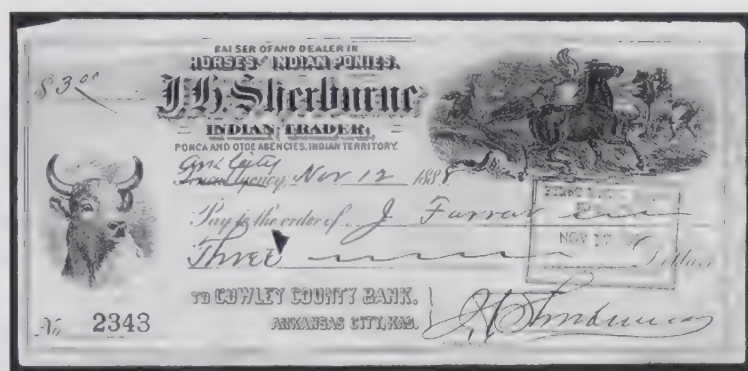 RAISER OF AND DEALER IN
HORSES AND INDIAN PONIES.
$3.00
J.H. Sherburne
INDIAN TRADER,
PONCA AND OTOE AGENCIES, INDIAN TERRITORY
Ark City
Ponca Agency, Nov 12 1888
Pay to the order of J Farrar
Three Dollars
FIRST
NOV
TO COWLEY COUNTY BANK.
ARKANSAS CITY, KAS.
No. 2343
J.H. Sherburne